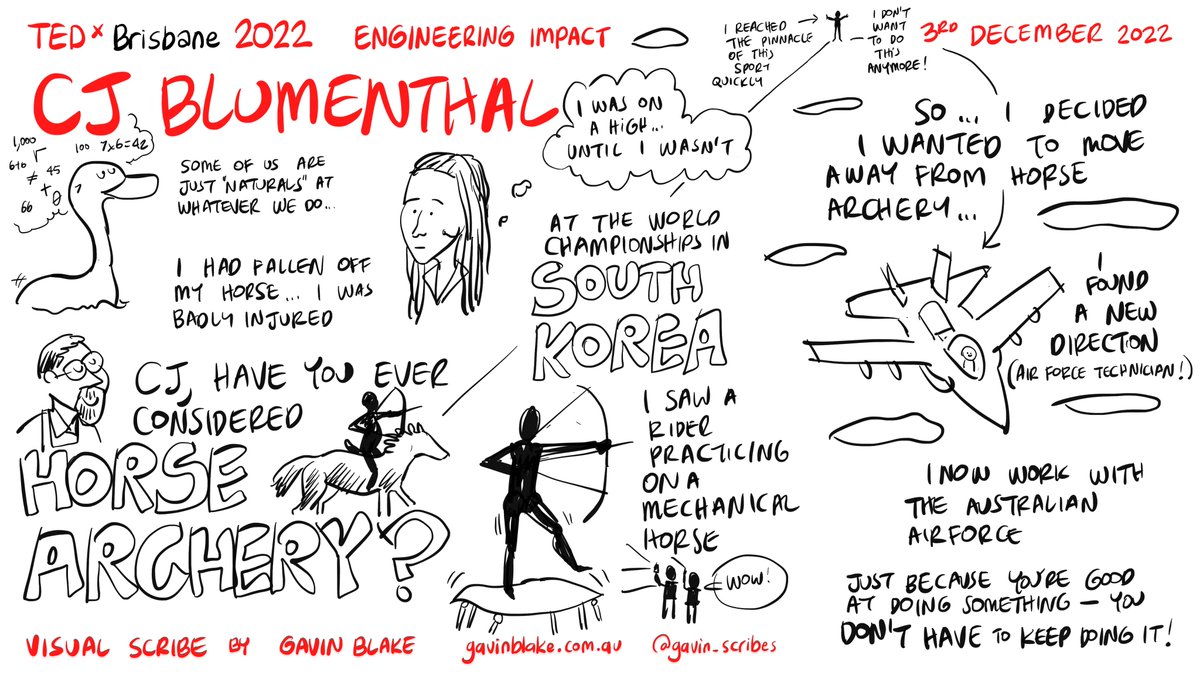 TEDx Brisbane 2022 ENGINEERING IMPACT
3RD DECEMBER 2022
CJ BLUMENTHAL
1,000
100 7x6=42
610
≠ 45
+
66
SOME OF US ARE
JUST "NATURALS" AT
WHATEVER WE DO...
I HAD FALLEN OFF
MY HORSE... I WAS
BADLY INJURED
CJ, HAVE YOU EVER
CONSIDERED
HORSE
ARCHERY?
I WAS ON
A HIGH...
UNTIL I WASN'T
AT THE WORLD
CHAMPIONSHIPS IN
SOUTH
KOREA
I SAW A
RIDER
PRACTICING
ON A
MECHANICAL
HORSE
WOW!
I REACHED
THE PINNACLE
OF THIS
SPORT
QUICKLY
I DON'T
WANT
TO DO
THIS
ANYMORE!
SO... I DECIDED
I WANTED TO MOVE
AWAY FROM HORSE
ARCHERY...
I
FOUND
A NEW
DIRECTION
(AIR FORCE TECHNICIAN!)
I NOW WORK WITH
THE AUSTRALIAN
AIRFORCE
JUST BECAUSE YOU'RE GOOD
AT DOING SOMETHING – YOU
DON'T HAVE TO KEEP DOING IT!
VISUAL SCRIBE BY GAVIN BLAKE gavinblake.com.au @gavin_scribes